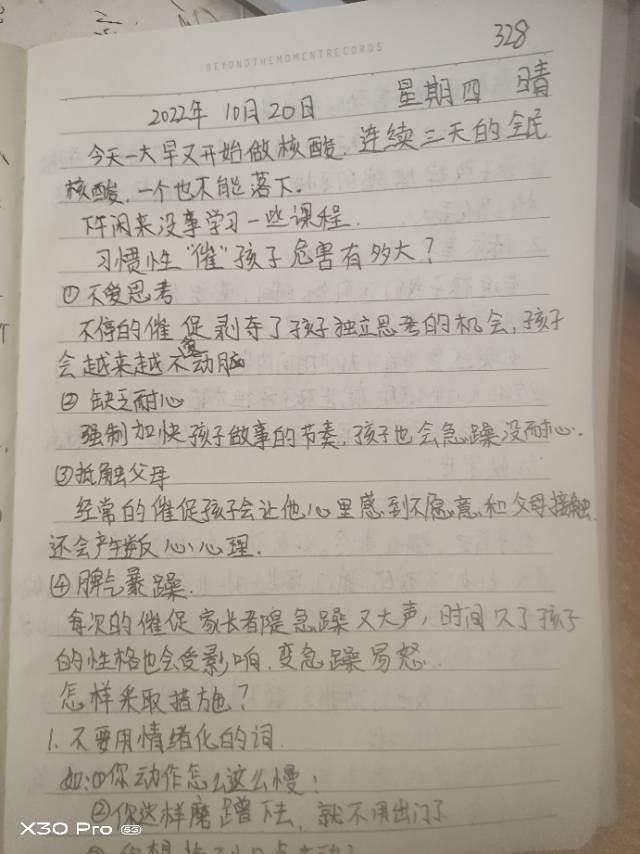 BEYONDTHEMOMENTRECORDS
328
2022年 10月20日 星期四 晴
今天一大早又开始做核酸，连续三天的全民
核酸，一个也不能落下。
下午闲来没事学习一些课程。
习惯性“催”孩子危害有多大？
①不爱思考
不停的催促剥夺了孩子独立思考的机会，孩子
会越来越不爱动脑
②缺乏耐心
强制加快孩子做事的节奏，孩子也会急躁没耐心。
③抵触父母
经常的催促孩子会让他心里感到不愿意和父母接触
还会产生叛心心理。
④脾气暴躁。
每次的催促家长都是急躁又大声，时间久了孩子
的性格也会受影响，变急躁易怒。
怎样采取措施？
1. 不要用情绪化的词。
如：①你动作怎么这么慢！
②你这样磨蹭下去，就不用出门了
X30 Pro 5G